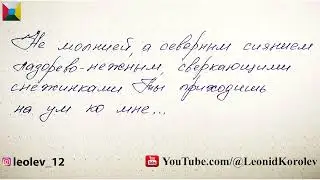 Не молнией, а северным сиянием
лазорево-нежным, сверкающими
снежинками Ты приходишь
на ум ко мне...
leolev_12
YouTube.com/@LeonidKorolev